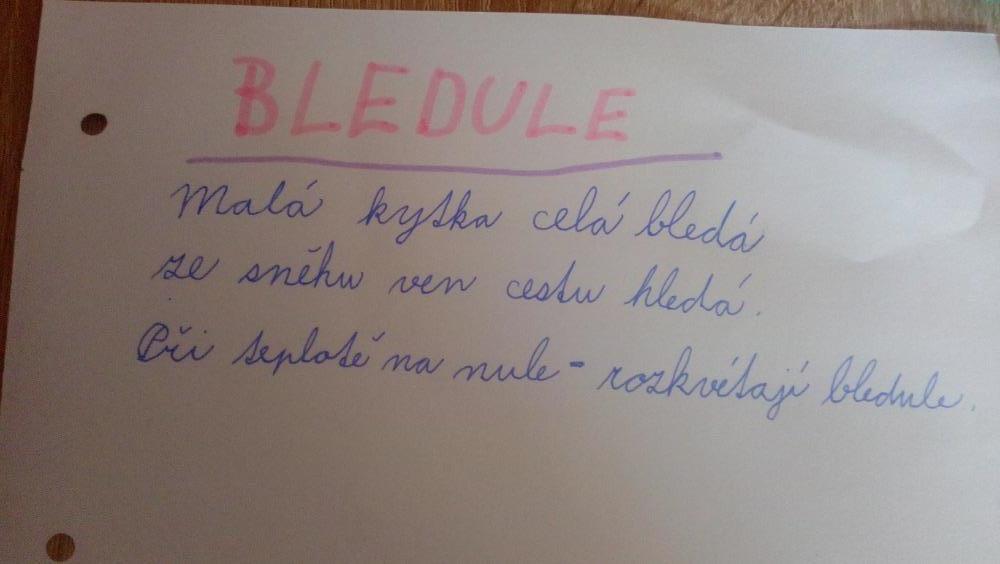 BLEDULE
Malá kytka celá bledá
ze sněhu ven cestu hledá.
Při teplotě na nule - rozkvétají bledule.